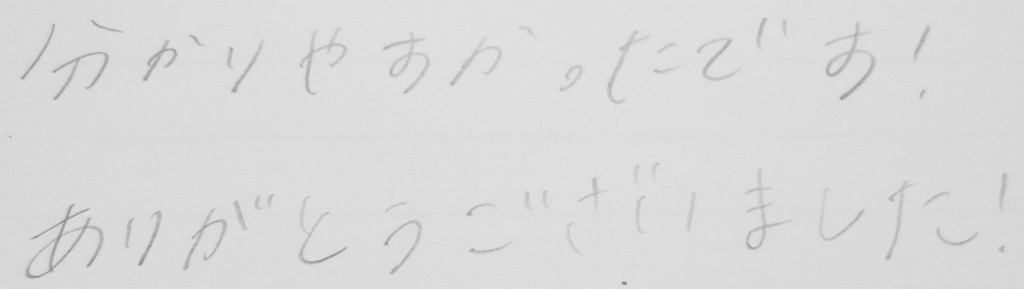 分かりやすかったです!
ありがとうございました!